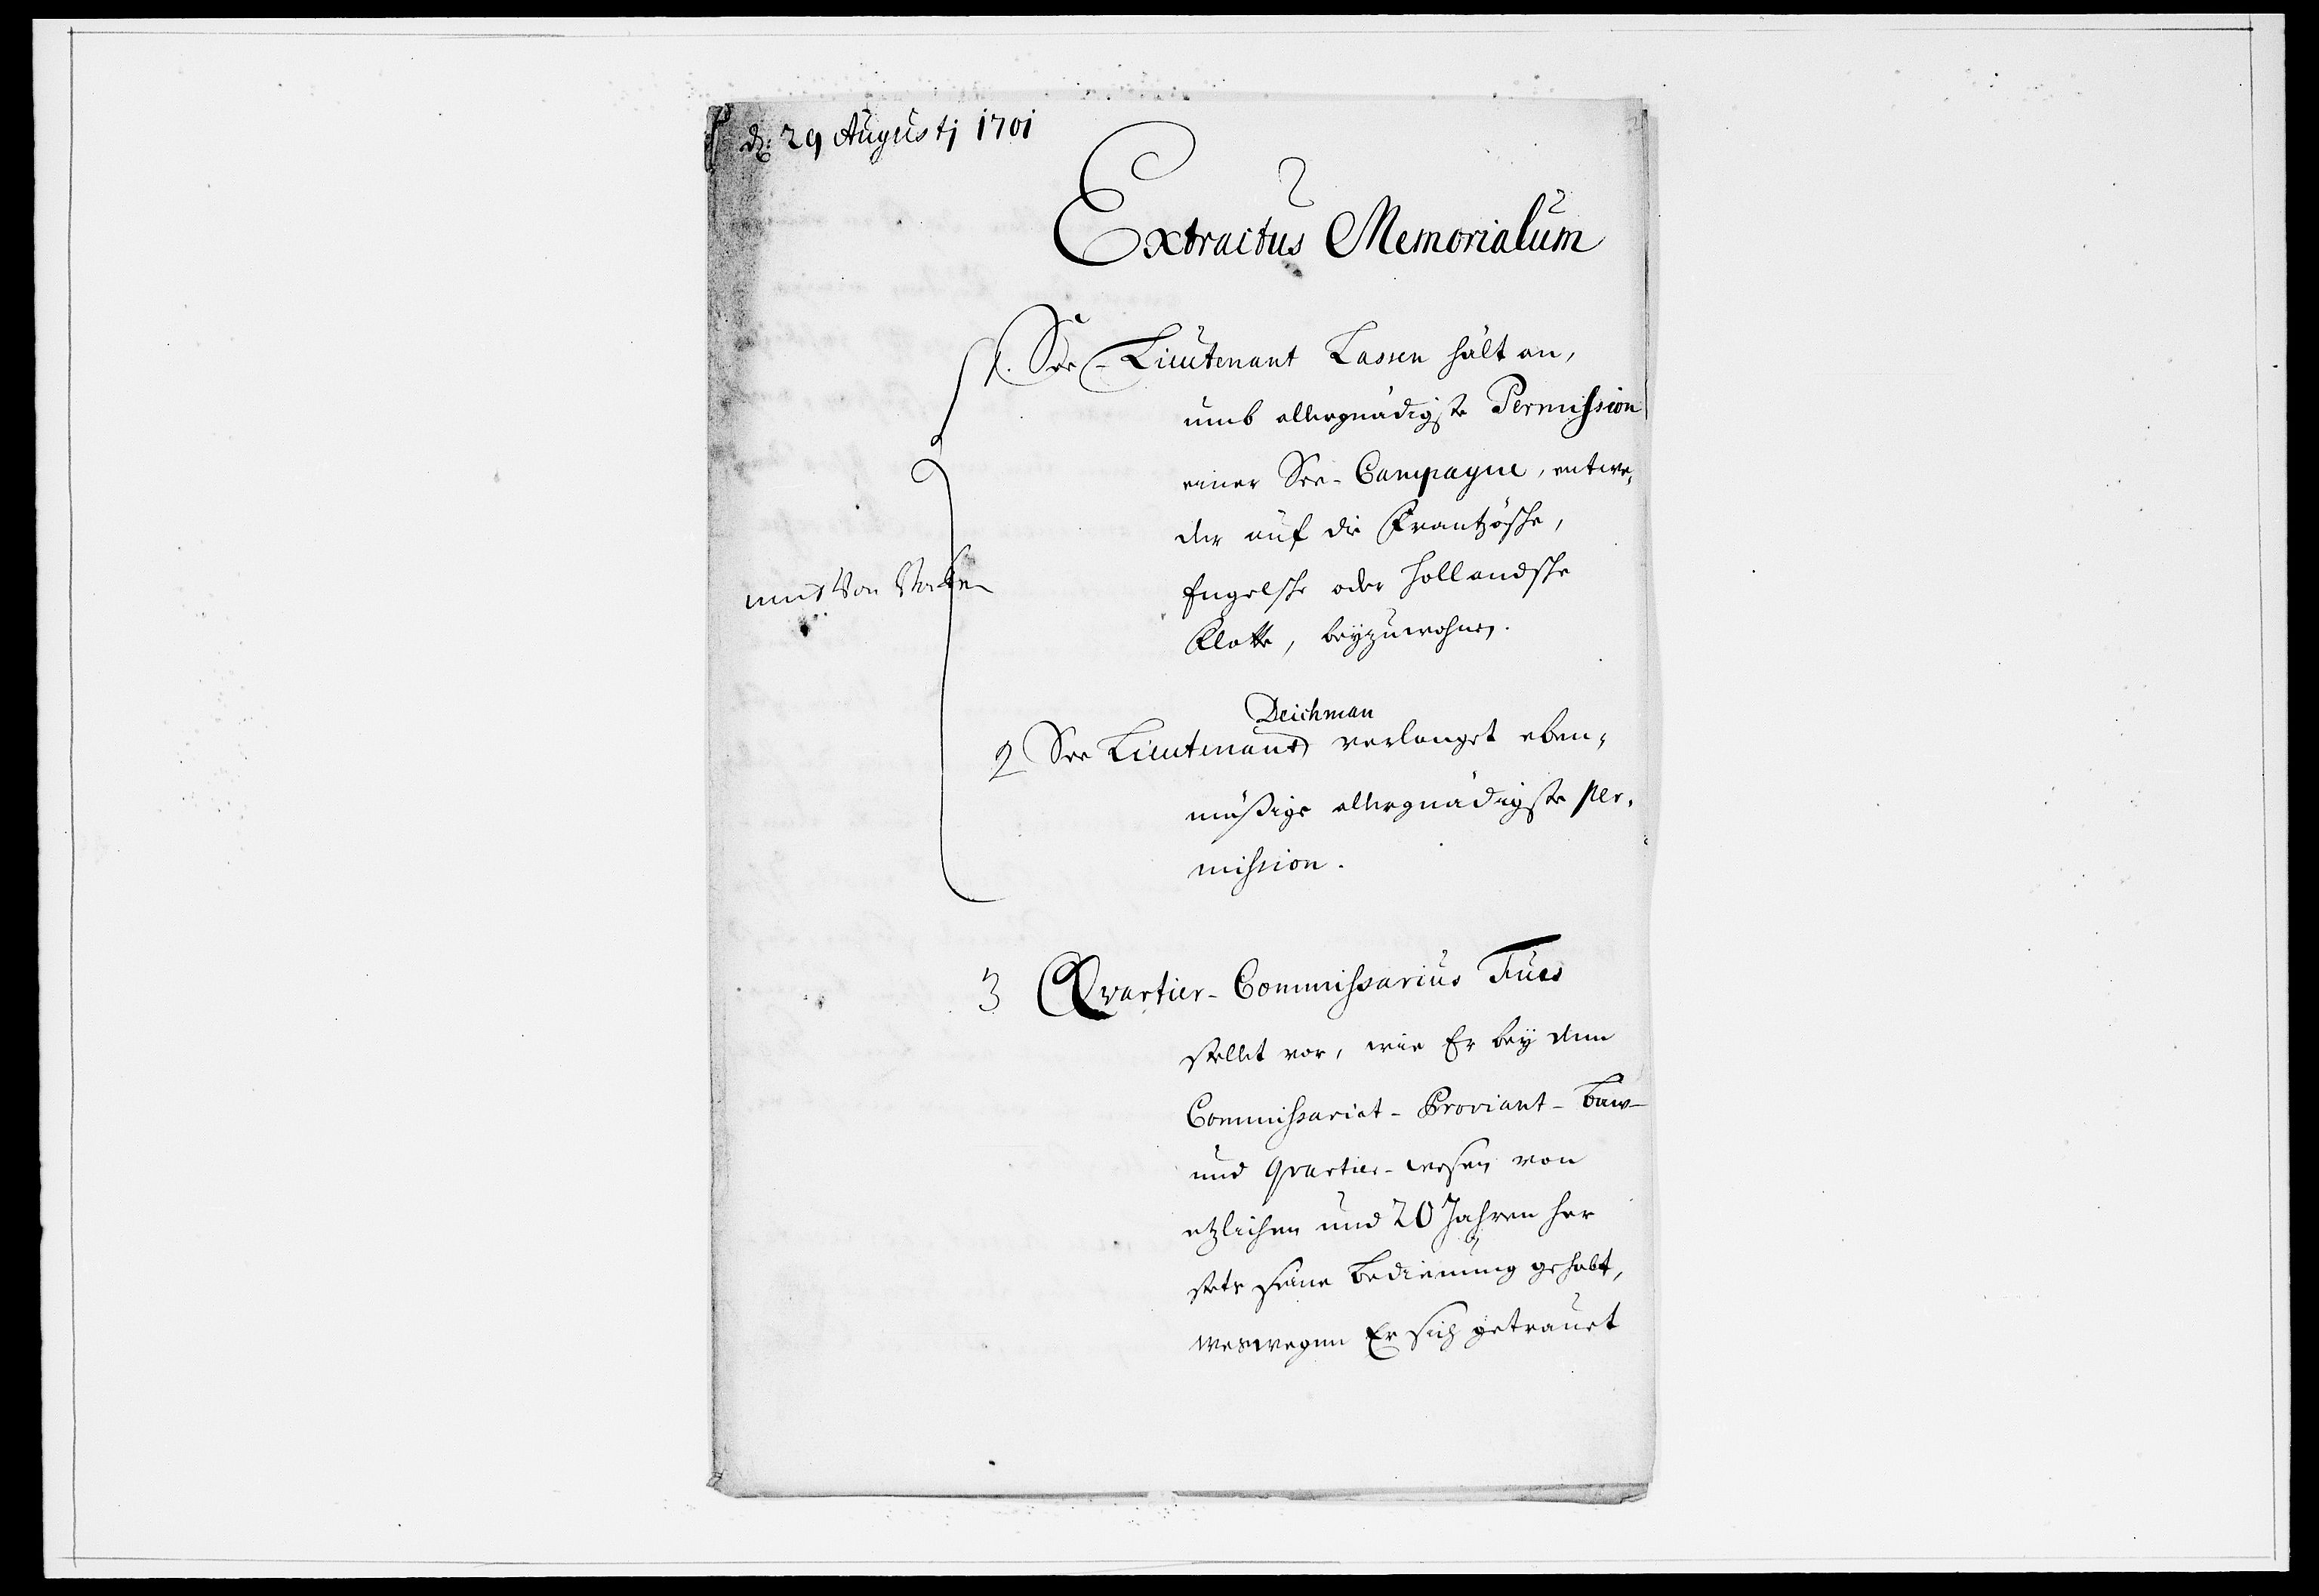 d: 29 Augustj 1701
Extractus Memorialum
1. See-Lieutenant Lassen hält an,
umb allergnädigste Permission
einer See-Campagne, entwe,
der auf die Frantzösche,
Engelsche oder Hollandsche
Flotte, beyzuwohnen.
Deichman
2 See Lieutenant verlanget eben,
mäßige allergnädigste per,
mission.
3 Qvartier-Commissarius Fues
stellet vor, wie Er bey dem
Commissariat-Proviant-Baw-
und Qvartier-wesen von
etzlichen und 20 Jahren her
stets seine Bedienung gehabt,
weswegen Er sich getrauet